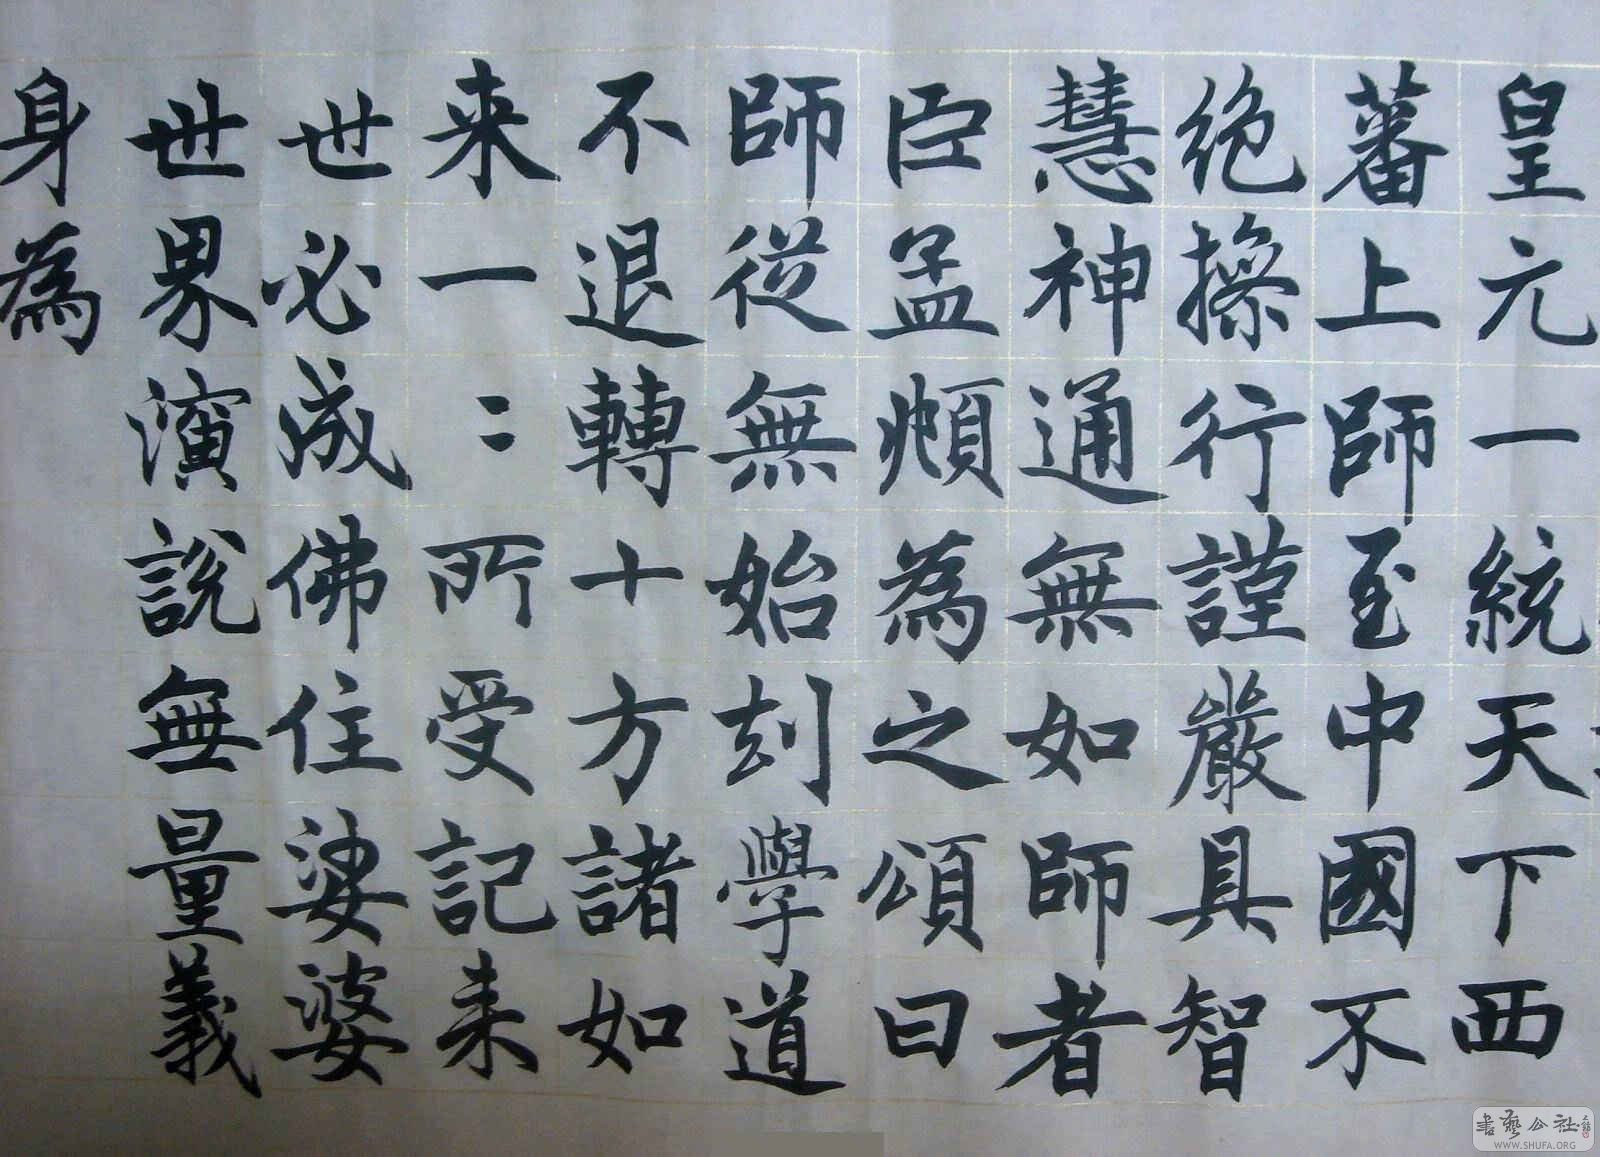 皇元一統天下西
蕃上師至中國不
絶操行謹嚴具智
慧神通無如師者
臣孟頫為之頌曰
師從無始刦學道
不退轉十方諸如
来一〻所受記来
世必成佛住娑婆
世界演說無量義
身為
書藝公社
WWW.SHUFA.ORG